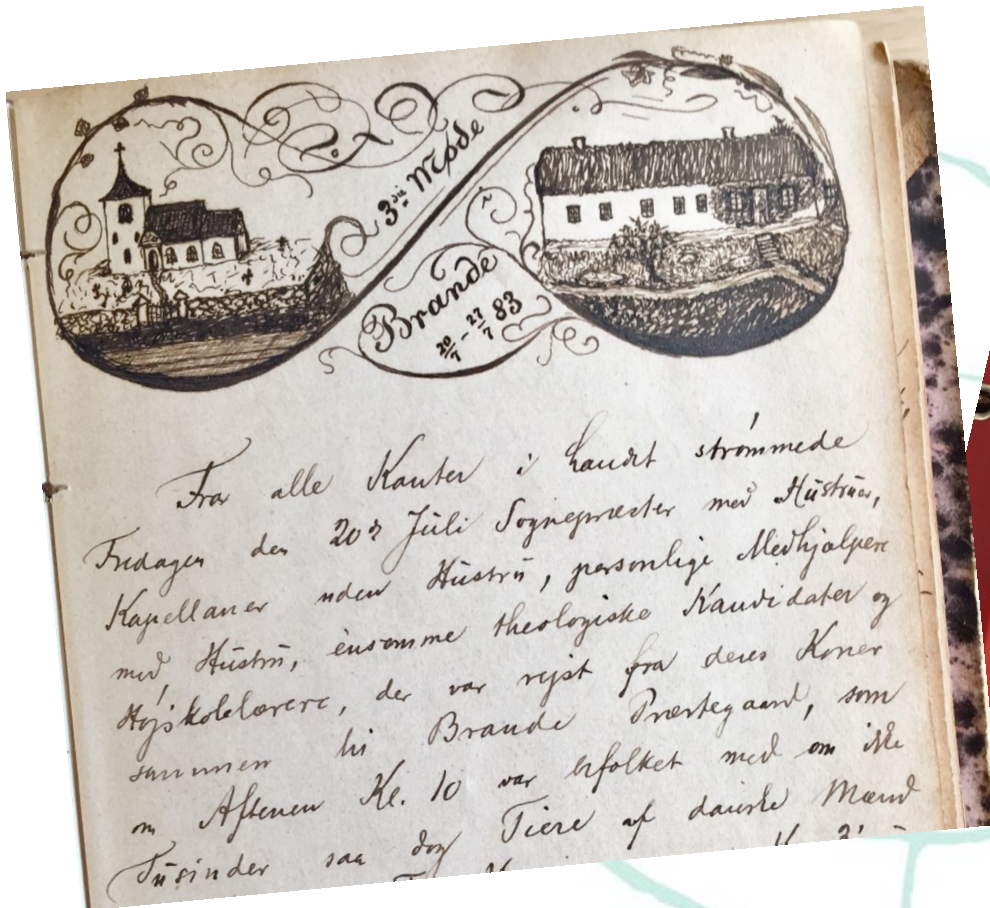 3die Møde
Brande
20/7 - 27/7 83
Fra alle Kanter i Landet strømmede
Fredagen den 20de Juli Sognepræster med Hustruer,
Kapellaner uden Hustru, personlige Medhjælpere
med Hustru, ensomme theologiske Kandidater og
Højskolelærere, der var rejst fra deres Koner
sammen til Brande Præstegaard, som
om Aftenen Kl. 10 var befolket med om ikke
Tusinder saa dog Tiere af danske Mænd